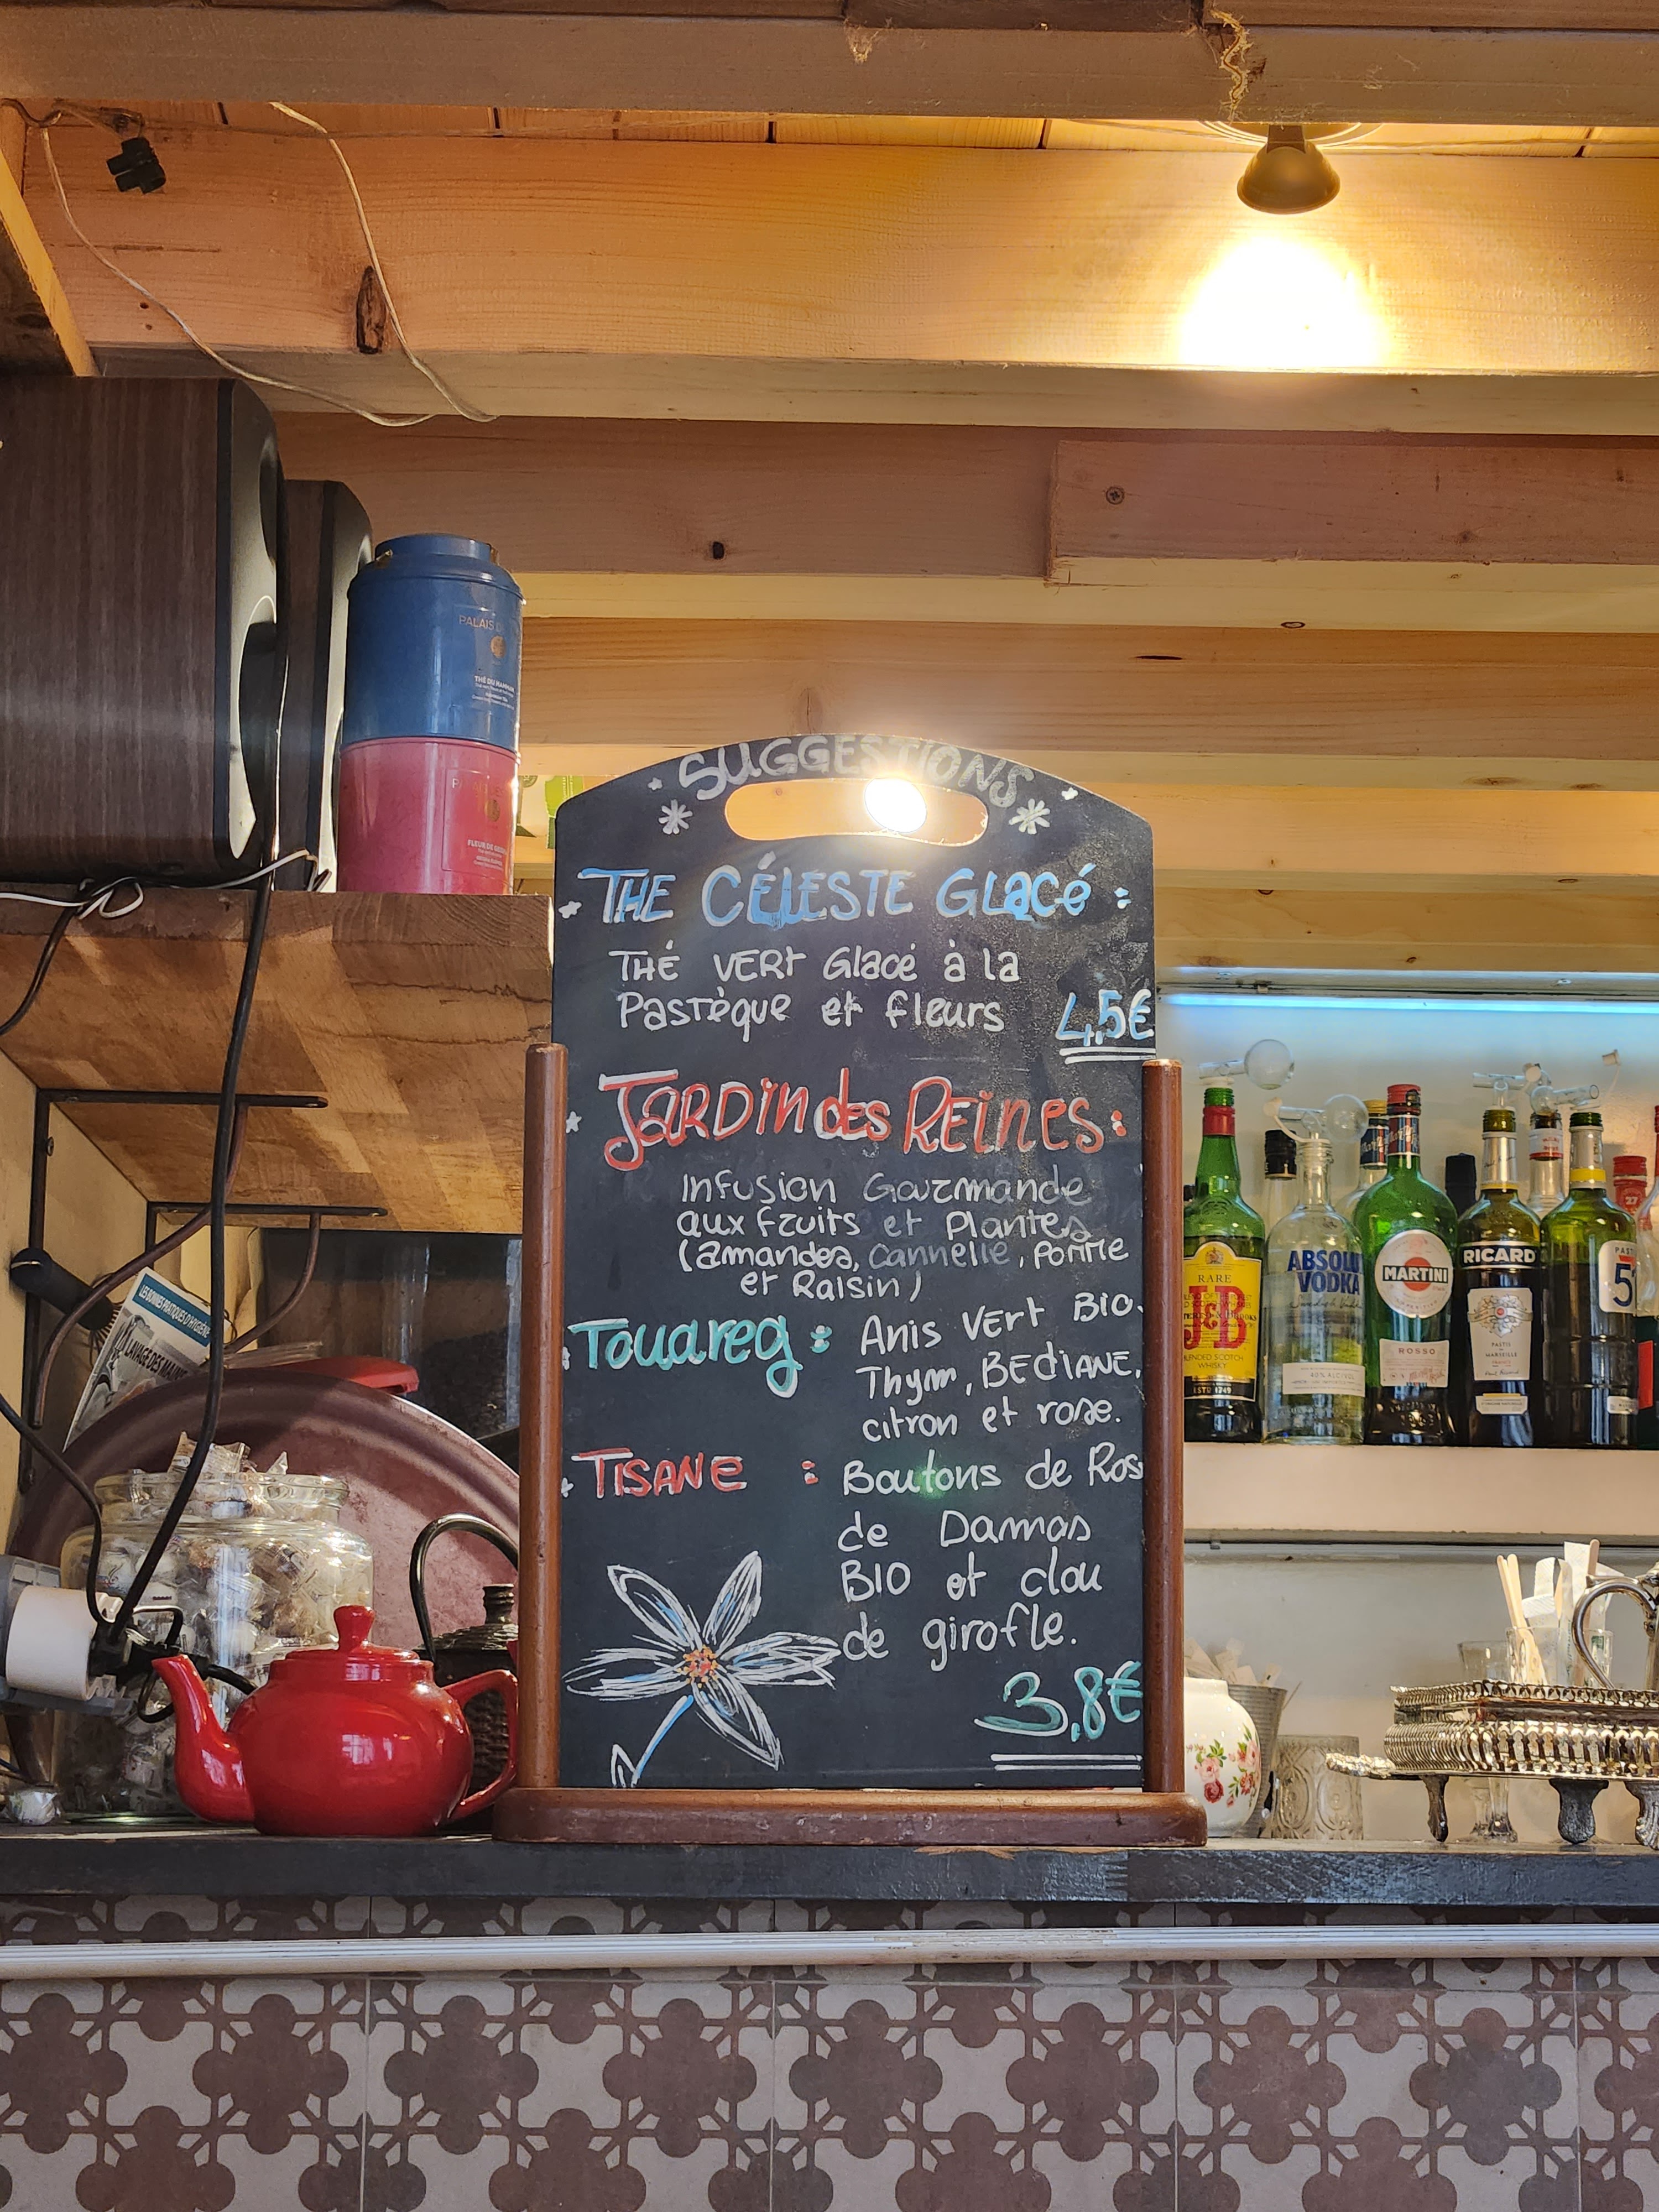 SUGGESTIONS
THE CÉLESTE GLACÉ :
THÉ VERT Glacé à la
PASTÈQUE et fleurs
4,5€
JARDIN des REINES :
Infusion Gourmande
aux fruits et Plantes
(amandes, cannelle, POMME
et Raisin)
Touareg : Anis Vert BIO.
Thym, BEDIANE,
citron et rose.
TISANE : Boutons de Ros
de Damas
BIO et clou
de girofle.
3,8€
PALAIS D
THÉ DU HAMMAM
FLEUR DE
LES BONNES PRATIQUES D'HYGIÈNE
LAVAGE DES MAINS
RARE
J&B
BLENDED SCOTCH
WHISKY
ESTD 1749
ABSOLU
VODKA
MARTINI
ROSSO
RICARD
PASTIS
DE
MARSEILLE
PAST
5